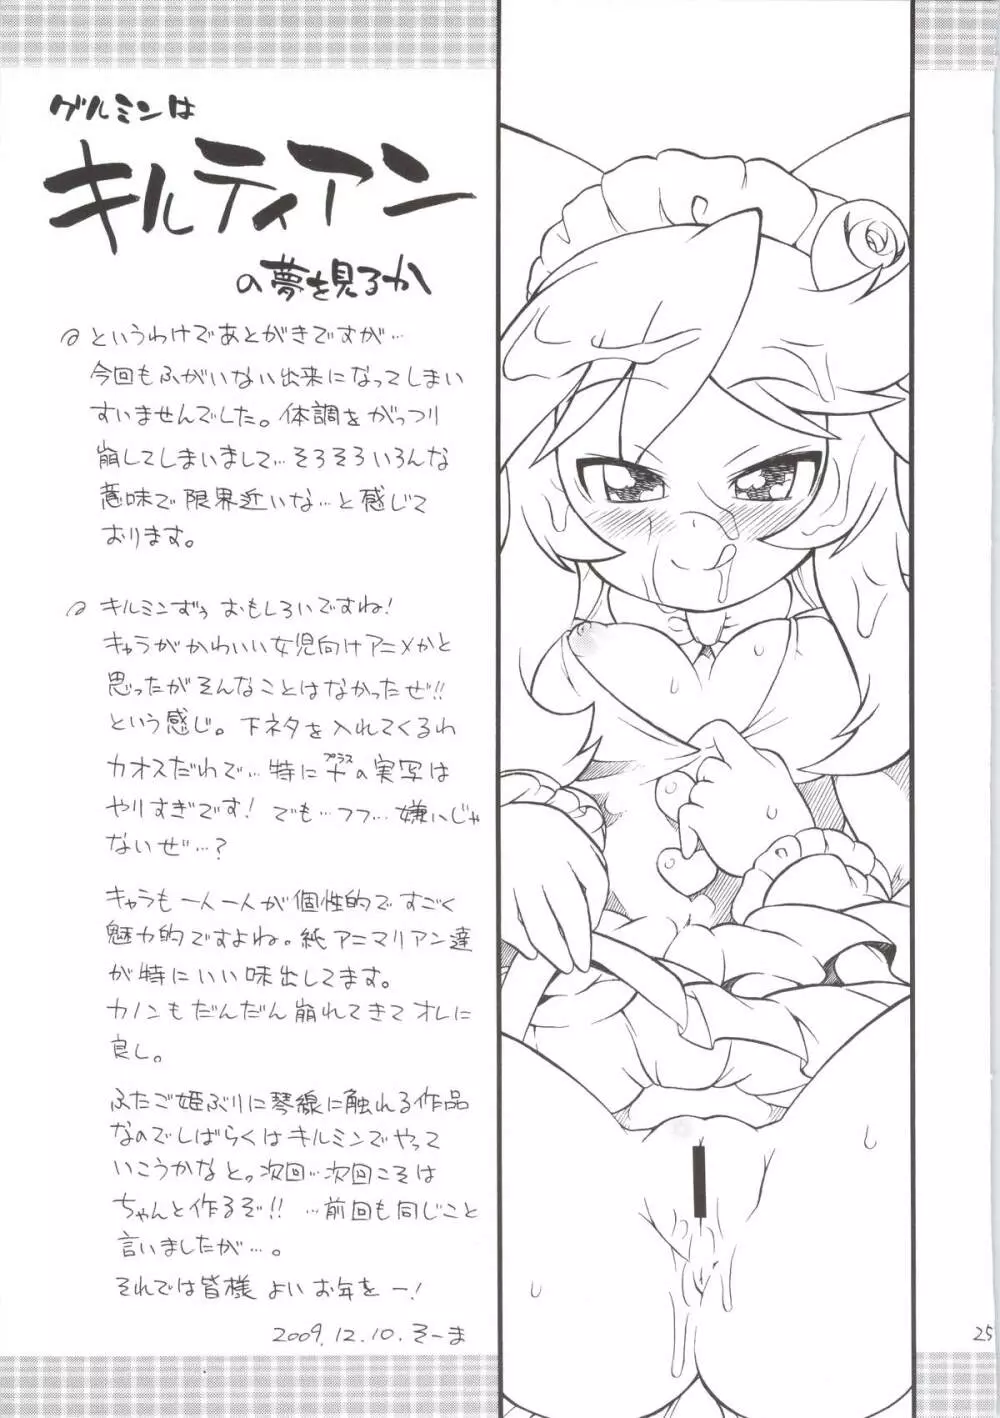 ゲルミンは
キルティアン
の夢を見るか
というわけであとがきですが…
今回もふがいない出来になってしまい
すいませんでした。体調をがっつり
崩してしまいまして…そろそろいろんな
意味で限界近いな…と感じて
おります。
キルミンずぅ おもしろいですね!
キャラがかわいい女児向けアニメかと
思ったがそんなことはなかったぜ!!
という感じ。下ネタを入れてくるわ
カオスだわで…特に+プラスの実写は
やりすぎです! でも…フフ…嫌いじゃ
ないぜ…?
キャラも一人一人が個性的ですごく
魅力的ですよね。紙アニマリアン達
が特にいい味出してます。
カノンもだんだん崩れてきてオレに
良し。
ふたご姫ぶりに琴線に触れる作品
なのでしばらくはキルミンでやって
いこうかなと。次回…次回こそは
ちゃんと作るぞ!! …前回も同じこと
言いましたが…。
それでは皆様 よいお年をー!
2009.12.10.そーま
25